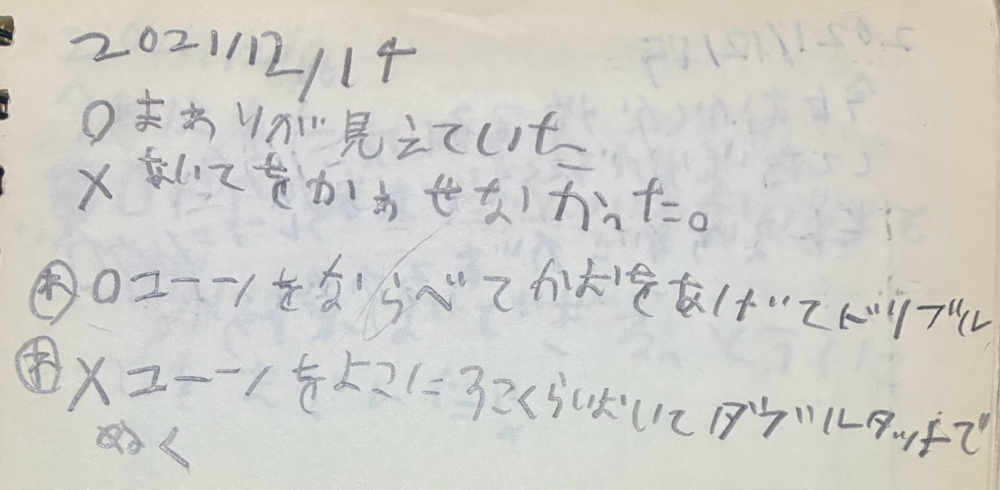 2021/12/14
○まわりが見えていた
×あいてをかわせなかった。
○コーンをならべてかおをあげてドリブル
×コーンをよこに3こくらいおいてダブルタッチで
ぬく